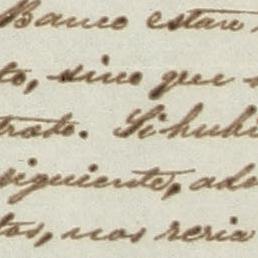 Banco estan
to, sino que
trato. Si hubi
siguiente, ade
tos, nos seria